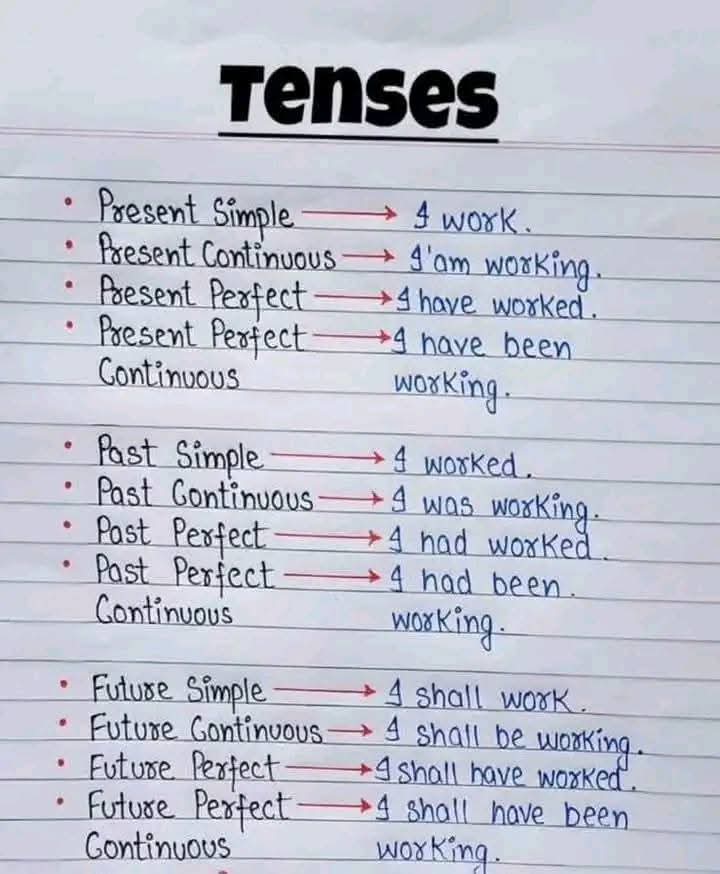 Tenses
• Present Simple → I work.
• Present Continuous → I'am working.
• Present Perfect → I have worked.
• Present Perfect → I have been
Continuous working.
• Past Simple → I worked.
• Past Continuous → I was working.
• Past Perfect → I had worked.
• Past Perfect → I had been.
Continuous working.
• Future Simple → I shall work.
• Future Continuous → I shall be working.
• Future Perfect → I shall have worked.
• Future Perfect → I shall have been
Continuous working.